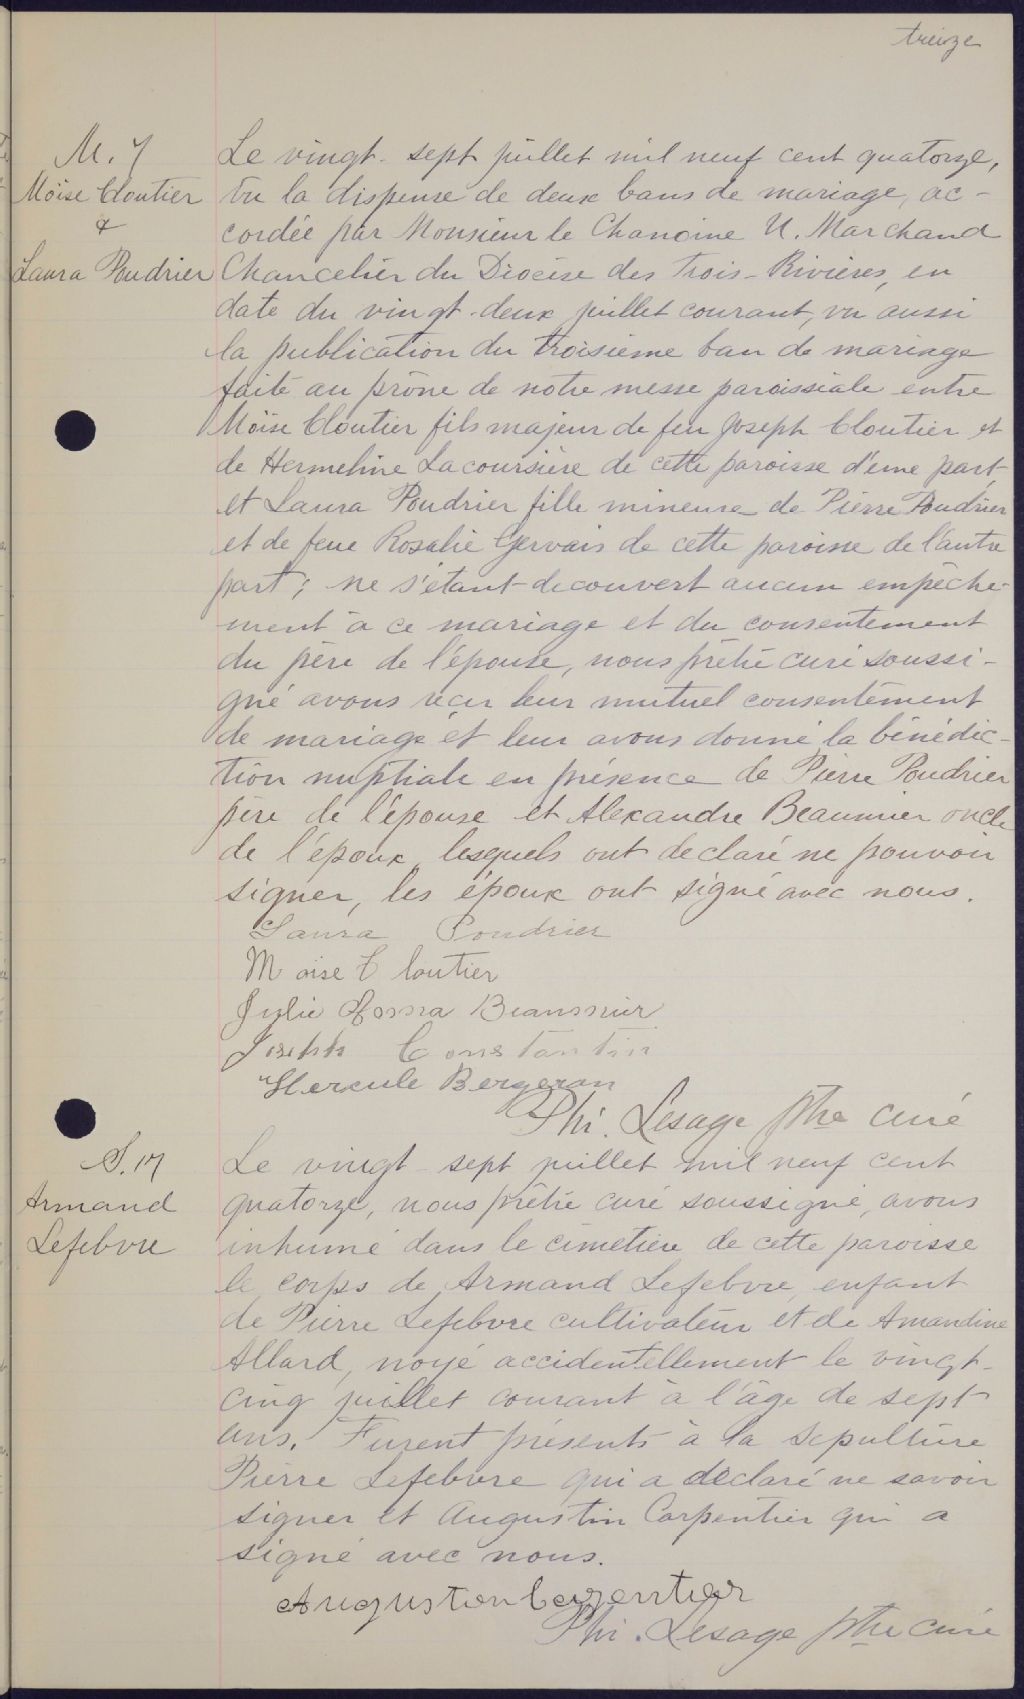 treize
M. 7
Moïse Cloutier
&
Laura Poudrier
Le vingt-sept juillet mil neuf cent quatorze,
vu la dispense de deux bans de mariage, ac-
cordée par Monsieur le Chanoine U. Marchand
Chancelier du Diocèse des Trois-Rivières, en
date du vingt-deux juillet courant, vu aussi
la publication du troisième ban de mariage
faite au prône de notre messe paroissiale entre
Moïse Cloutier fils majeur de feu Joseph Cloutier et
de Hermeline Lacoursière de cette paroisse d'une part,
et Laura Poudrier fille mineure de Pierre Poudrier
et de feue Rosalie Gervais de cette paroisse de l'autre
part; ne s'étant découvert aucun empêche-
ment à ce mariage et du consentement
du père de l'épouse, nous prêtre curé soussi-
gné avons reçu leur mutuel consentement
de mariage et leur avons donné la bénédic-
tion nuptiale en présence de Pierre Poudrier
père de l'épouse et Alexandre Beaumier oncle
de l'époux, lesquels ont declaré ne pouvoir
signer, les époux ont signé avec nous.
Laura Poudrier
Moise Cloutier
Julie Beaumier
Joseph Constantin
Hercule Bergeron
Phi. Lesage ptre curé
S. 17
Armand
Lefebvre
Le vingt-sept juillet mil neuf cent
quatorze, nous prêtre curé soussigné, avons
inhumé dans le cimetière de cette paroisse
le corps de Armand Lefebvre, enfant
de Pierre Lefebvre cultivateur et de Amandine
Allard, noyé accidentellement le vingt-
cinq juillet courant à l'âge de sept
ans. Furent présents à la sépulture
Pierre Lefebvre qui a déclaré ne savoir
signer et Augustin Carpentier qui a
signé avec nous.
Auguston Carpentier
Phi. Lesage ptre curé